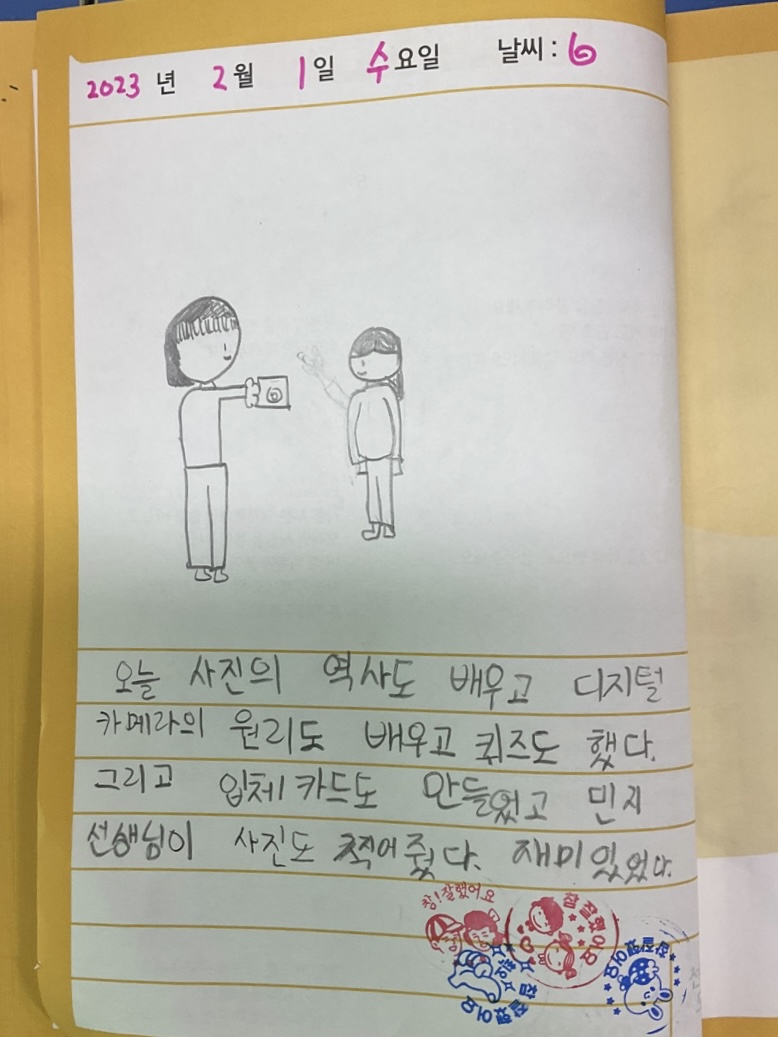 2023 년 2월 1일 수요일 날씨 : 6
오늘 사진의 역사도 배우고 디지털
카메라의 원리도 배우고 퀴즈도 했다.
그리고 입체카드도 만들었고 민지
선생님이 사진도 찍어줬다. 재미있었다.
참!잘했어요
참 잘했어요
참 잘했어요
참잘했어요